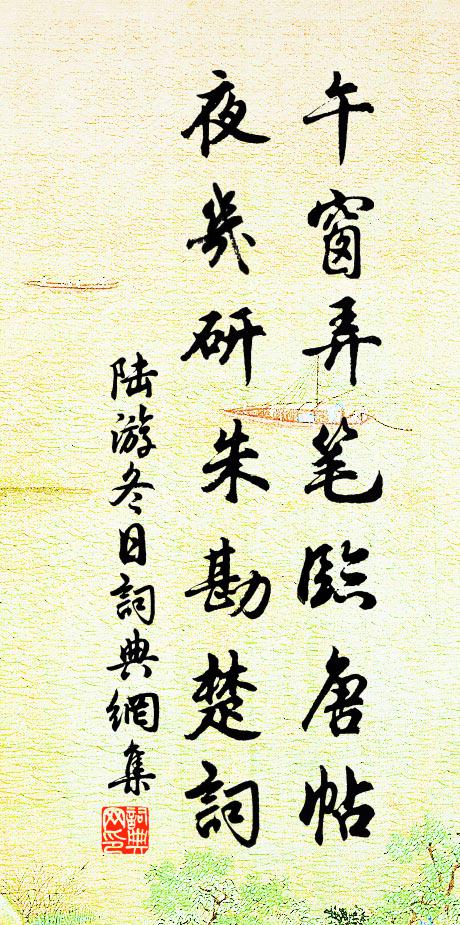 午窗弄笔臨唐帖
夜幾研朱勘楚詞
陆游冬日詞典網集
詞典网印